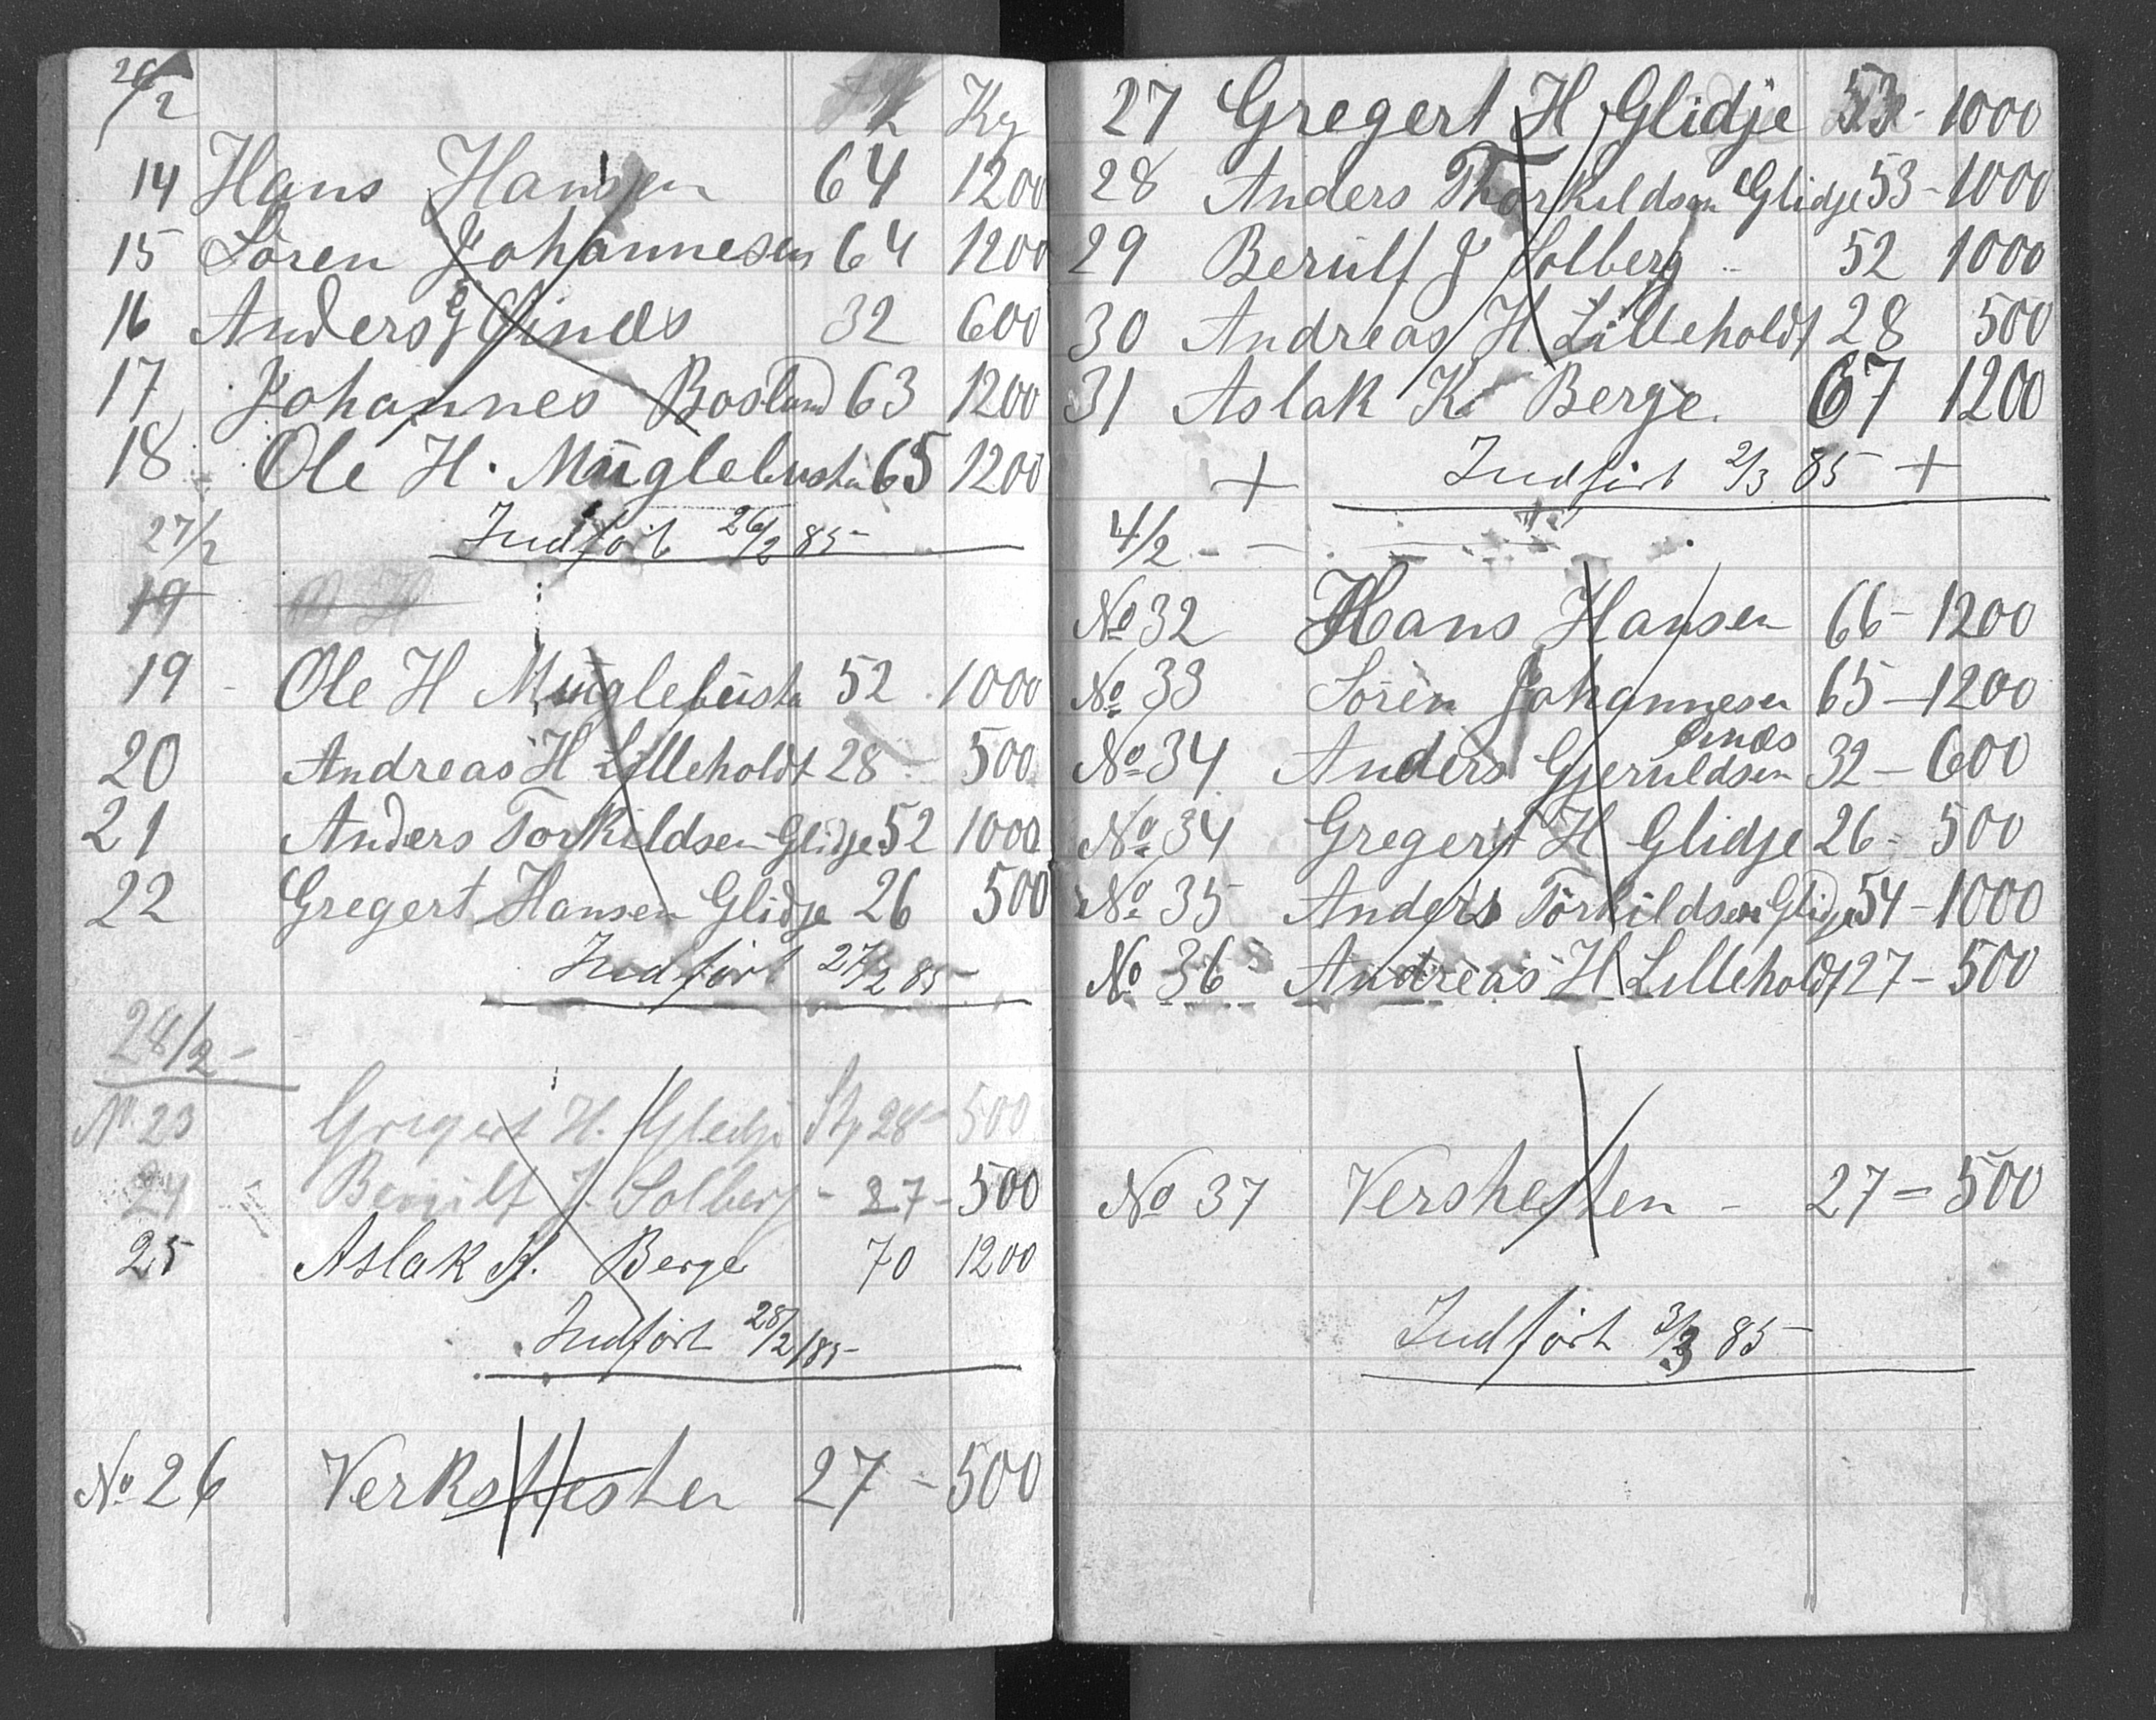 26/2 Kg
14 Hans Hansen 64 1200
15 Sören Johannesen 64 1200
16 Anders G Einæs 32 600
17 Johannes Bosland 63 1200
18 Ole H. Müglebusta 65 1200
27/2 Indført 26/2 85
19
19 - Ole H Müglebusta 52 1000
20 Andreas H Lilleholdt 28 500
21 Anders Torkildsen Glidje 52 1000
22 Gregert Hansen Glidje 26 500
Indført 27/2 85
28/2 -
No 23 Gregert H. Glidje Stp 28 - 500
24 Berulf J. Solberg - 27 - 500
25 Aslak K. Berge 70 1200
Indført 28/2 /85
No 26 Verkshesten 27 - 500
27 Gregert H Glidje 53 - 1000
28 Anders Thorkildsen Glidje 53 - 1000
29 Berülf J Solberg .. 52 1000
30 Andreas H. Lilleholdt 28 500
31 Aslak K. Berge. 67 1200
+ Indført 2/3 85 +
4/2 - -
No 32 Hans Hansen 66 - 1200
No 33 Sören Johannesen 65 - 1200
Einæs
No 34 Anders Gjeruldsen 32 - 600
No 34 Gregert H Glidje 26 - 500
No 35 Anders Törkildsen Glidje 54 - 1000
No 36 Andreas H Lilleholdt 27 - 500
No 37 Vershesten - 27 = 500
Indført 3/3 85